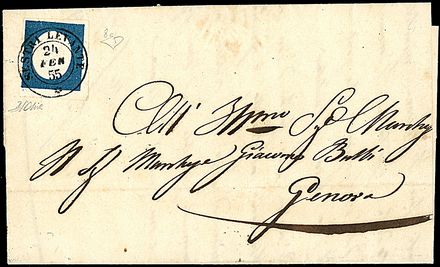 SESTRI LEVANTE
24
FEB
55
All' Illmo Sig Marchese
Il Sig Marchese Giacomo Balbi
Genova